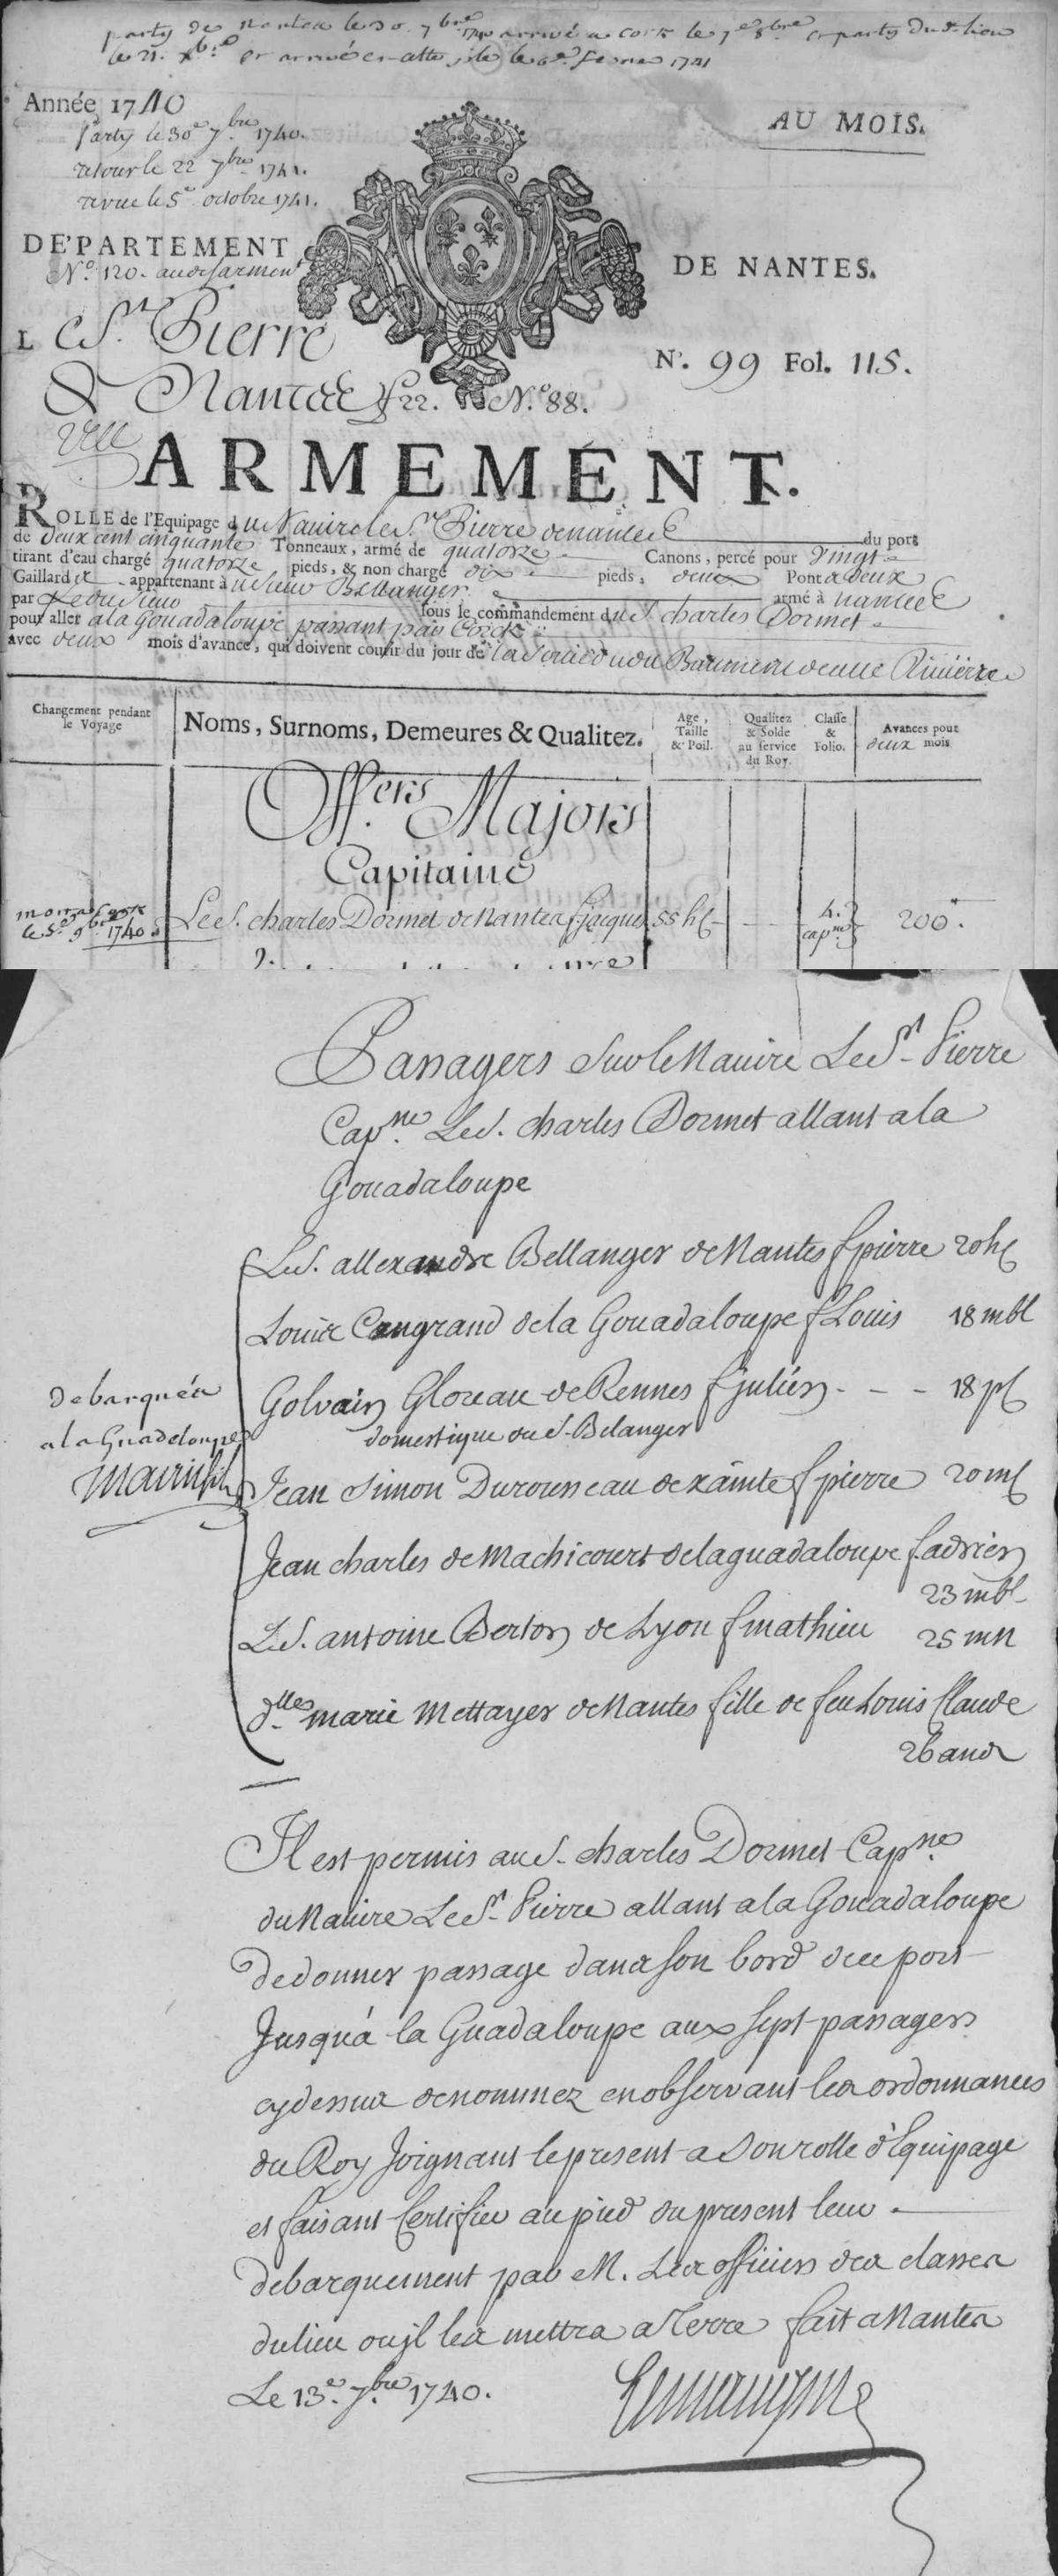 party de nantes le 30. 7bre 1740 arrivé a Cork le 7e 8bre et party dud. lieu
le 21. xbre et arrivé en cette isle le 6e fevrier 1741
Année 1740
party le 30e 7bre 1740.
retour le 22 7bre 1741.
revue le 5e octobre 1741.
AU MOIS.
DE'PARTEMENT
DE NANTES.
No. 120. au desarment
Le St. Pierre
N°. 99 Fol. 115.
de Nantes f 22. No. 88.
Vell
ARMEMENT.
ROLLE de l'Equipage du Navire le St. Pierre de nantes du port
de deux cent cinquante Tonneaux, armé de quatorze Canons, percé pour vingt
tirant d'eau chargé quatorze pieds, & non chargé dix pieds, deux Ponts deux
Gaillards appartenant au Sieur Bellanger armé à nantes
par Ledit Sieur sous le commandement du S. charles Dormet
pour aller a la Gouadaloupe passant par Corck
avec deux mois d'avance, qui doivent courir du jour de la sortie dudit navire de cette Riviere
Changement pendant le Voyage
Noms, Surnoms, Demeures & Qualitez.
Age, Taille & Poil.
Qualitez & Solde au service du Roy.
Classe & Folio.
Avances pour deux mois
Offers. Majors
Capitaine
mort a Cork
le 5e 9bre 1740
Le S. charles Dormet de Nantes f. jacques 55 h c
4. capne
200tt.
Passagers sur le Navire Le St. Pierre
Capne. Le S. charles Dormet allant a la
Gouadaloupe
Le S. allexandre Bellanger de Nantes f pierre 20 h c
Louis Cangrand de la Gouadaloupe f Louis 18 m bl
Golvain Gloreau de Rennes f julien - - - 18 p c
domestique du S. Belanger
debarqués
a la Guadeloupe
Jean Simon Durousseau de xainte f pierre 20 m c
Jean charles de Machicourt de la guadaloupe f. adrien
23 m bl
Le S. antoine Berton de Lyon f mathieu 25 m n
dlle. marie Mettayer de Nantes fille de feu Louis Claude
26 ans
Il est permis au S. charles Dormet Capne.
du Navire Le St. Pierre allant a la Gouadaloupe
de donner passage dans son bord de ce port
Jusqu'a la Guadaloupe aux sept passagers
cy dessus denommez en observant les ordonnances
du Roy Joignant le present a son rolle d'Equipage
et faisant Certifier au pied du present leur
debarquement par M. Les officiers des classes
du lieu ou jl les mettra a Terre fait a Nantes
Le 13e. 7bre 1740.